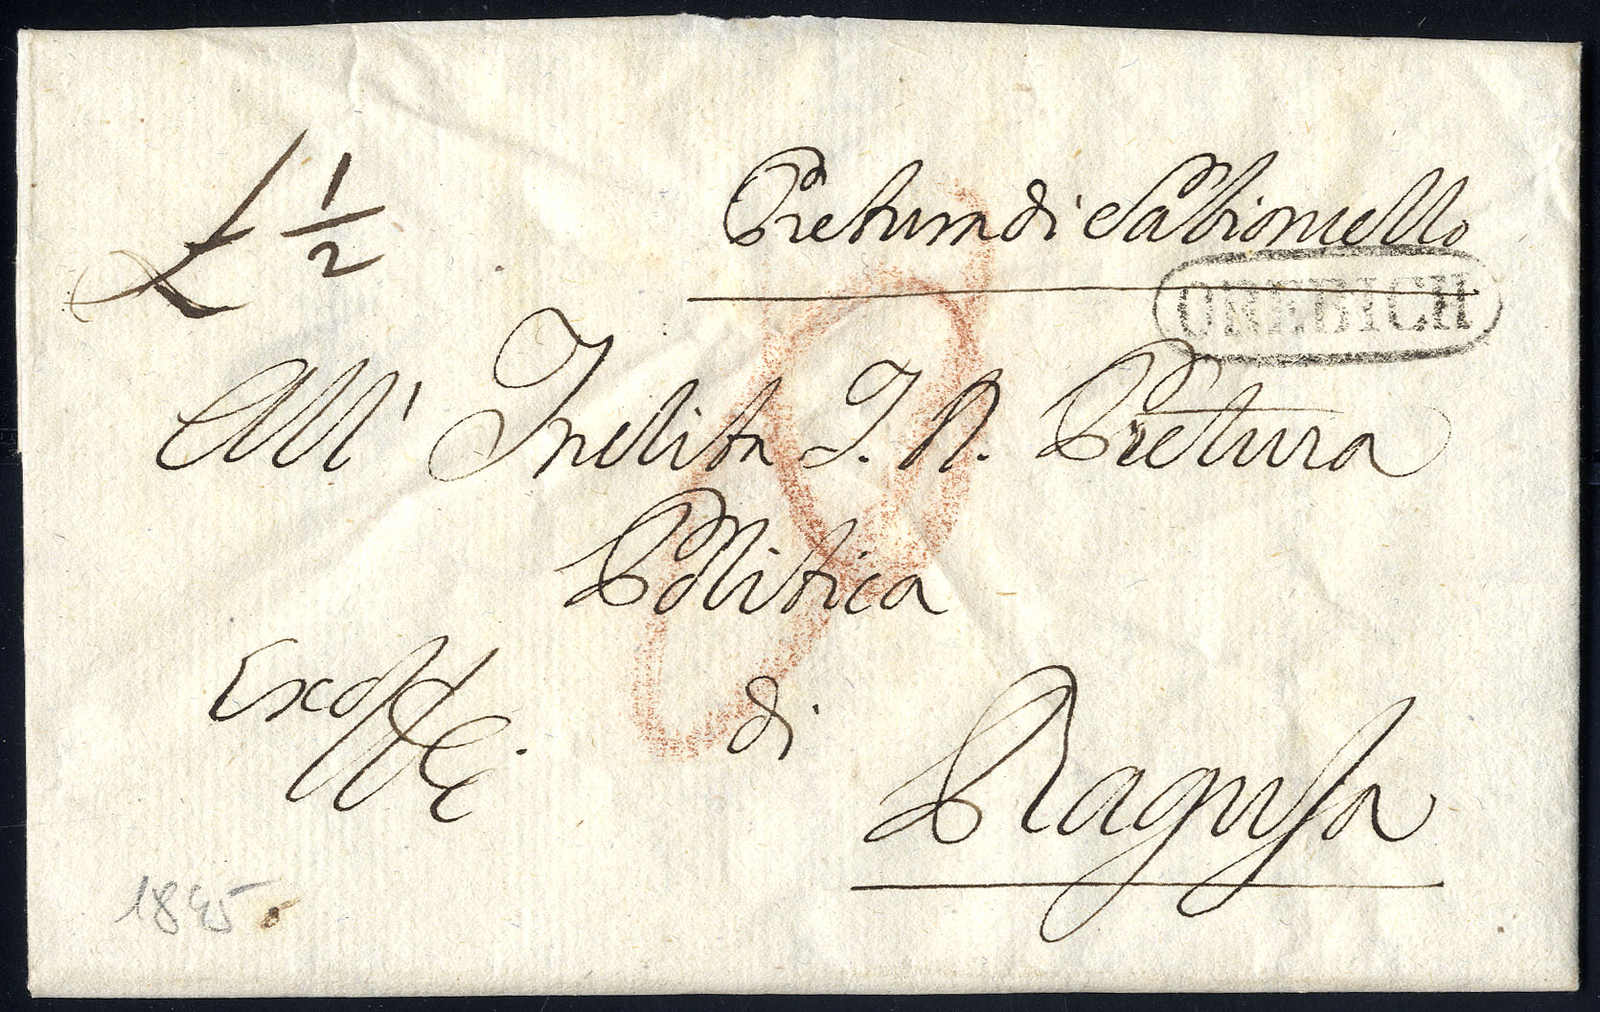 L 1/2
Pretura di Sabioncello
OREBICH
All' Inclita I. R. Pretura
Politica
Exoffo
di
Ragusa
1845